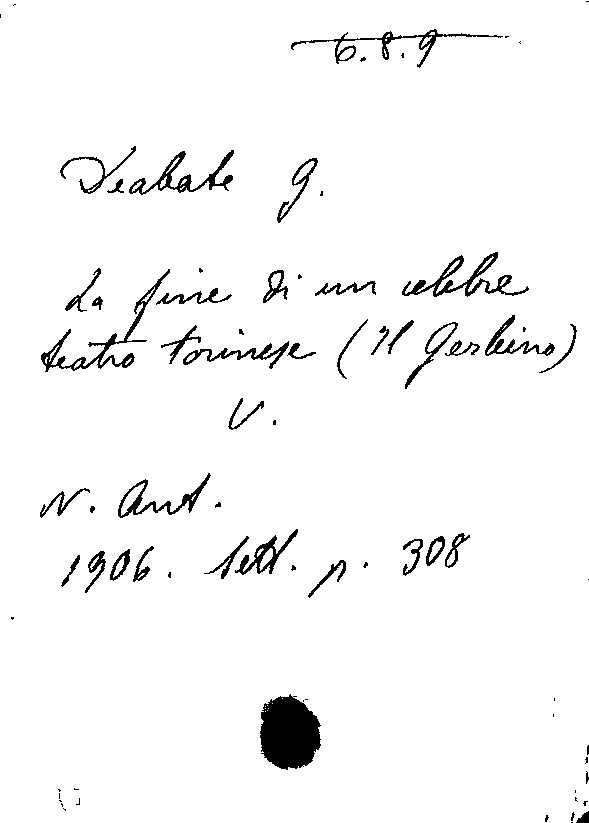 6.8.9
Deabate G.
La fine di un celebre
teatro torinese (Il Gerbino)
V.
N. Ant.
1906. Sett. p. 308